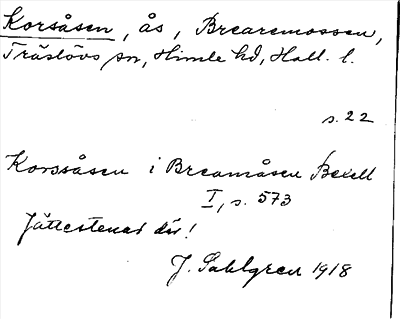 Korsåsen, ås, Brearemossen,
Träslövs sn, Himle hd, Hall. l.
s. 22
Korssåsen i Breamåsen Bexell
I, s. 573
Jättestenar där!
J. Sahlgren 1918